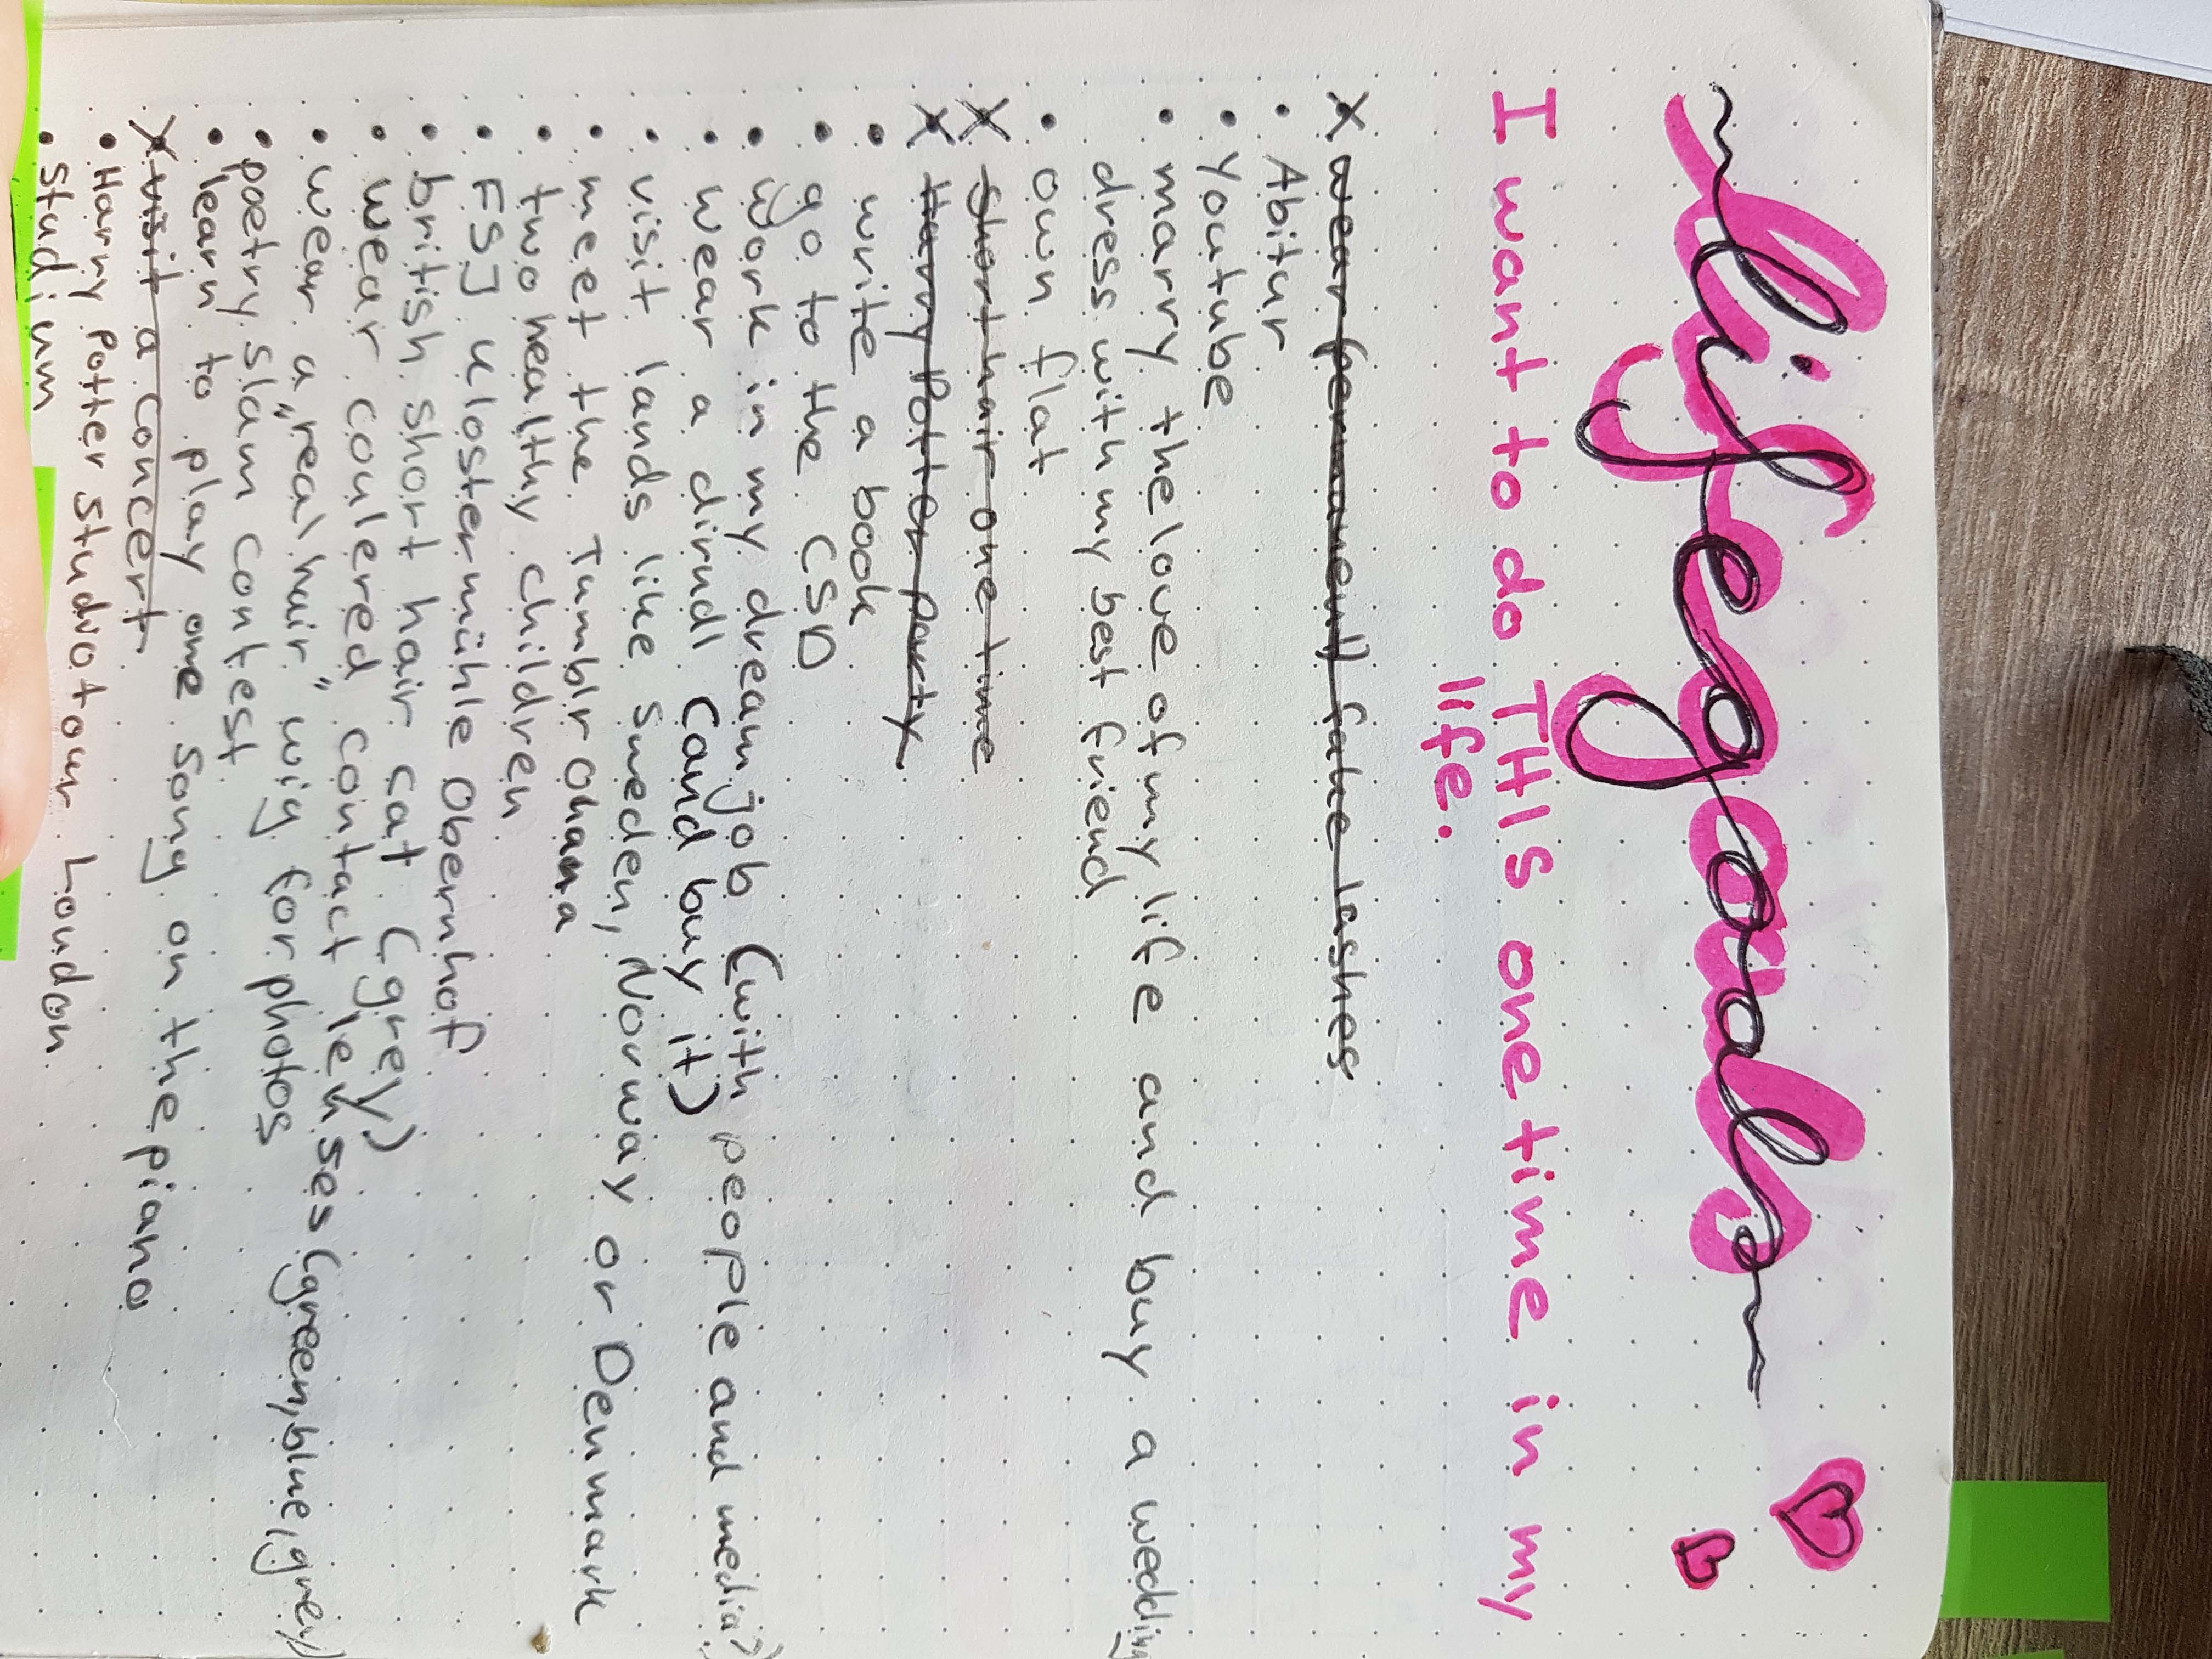 lifegoals
I want to do THIS one time in my
life.
X wear (permanent) fake lashes
• Abitur
• Youtube
• marry the love of my life and buy a wedding
dress with my best friend
• own flat
X short hair one time
X Harry Potter party
• write a book
• go to the CSD
• work in my dreamjob (with people and media)
• wear a dirndl (and buy it)
• visit lands like Sweden, Norway or Denmark
• meet the Tumblr ohana
• two healthy children
• FSJ Klostermühle Obernhof
• british short hair cat (grey)
• wear coulered contact lenses (green, blue, grey)
• wear a "real hair" wig for photos
• poetry slam contest
• learn to play one song on the piano
X visit a concert
• Harry Potter studiotour London
• Studium